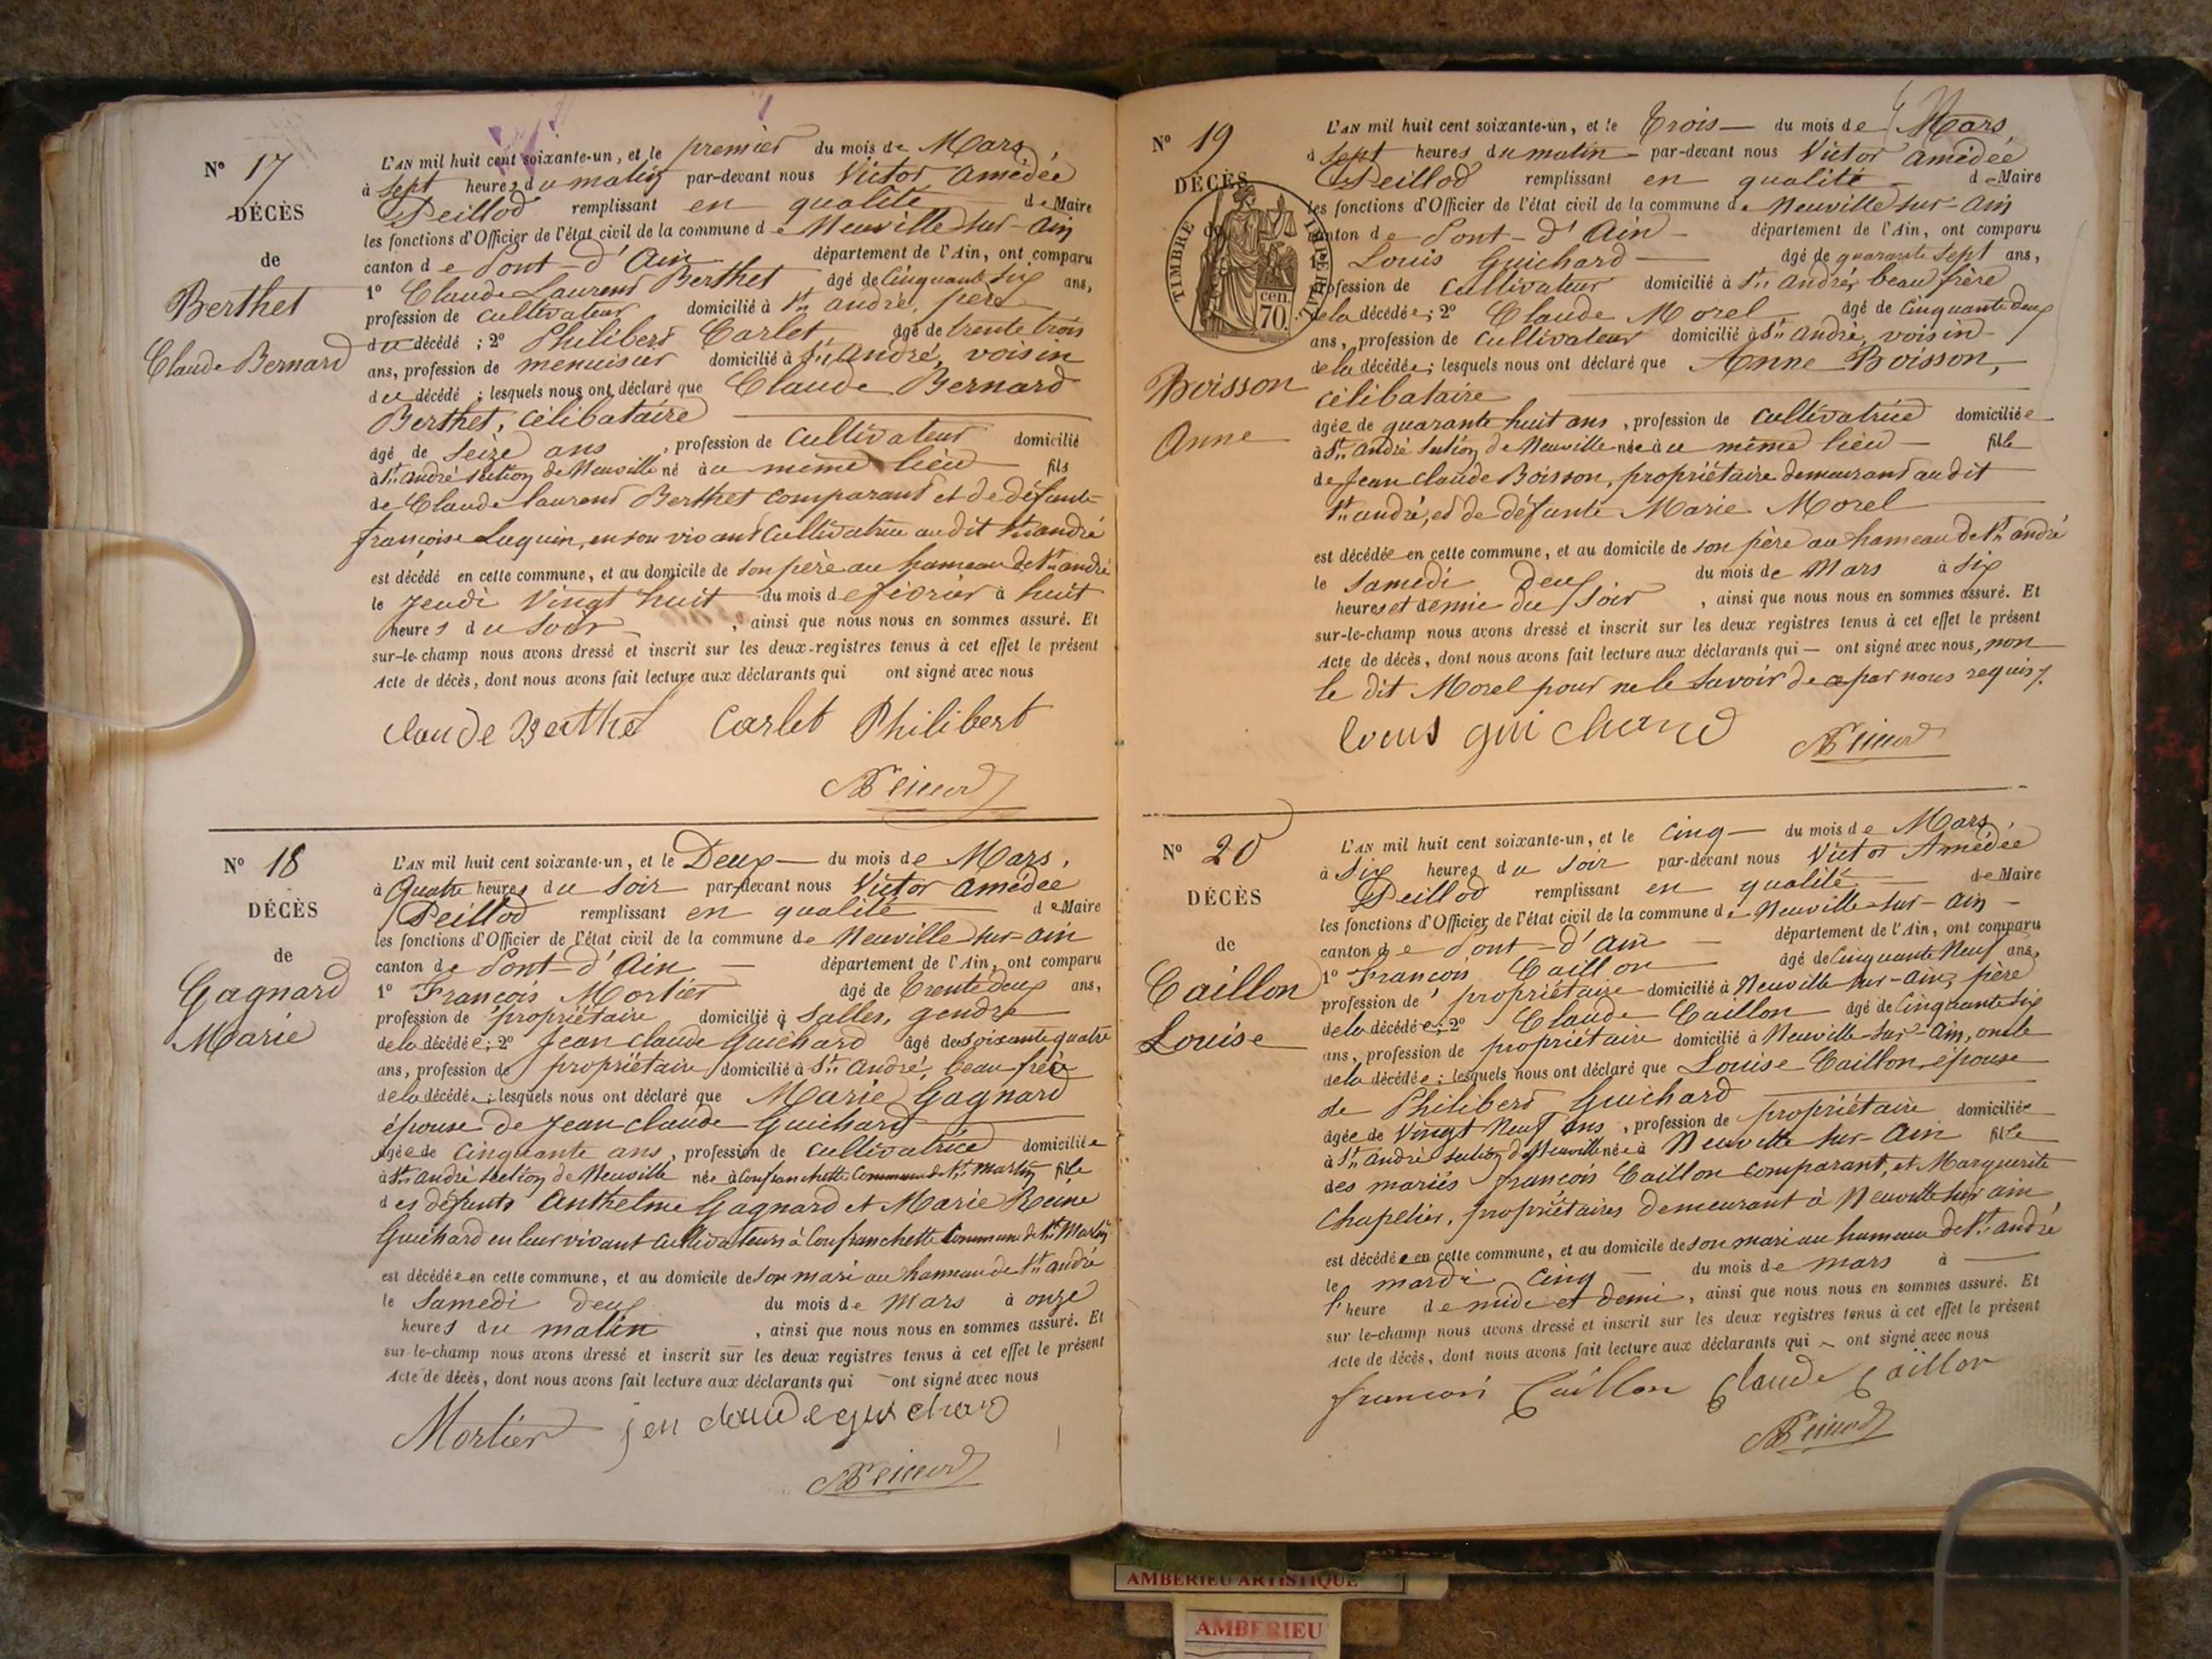 N° 17
DÉCÈS
de
Berthet
Claude Bernard
L'AN mil huit cent soixante-un, et le premier du mois de Mars,
à sept heures du matin par-devant nous Victor Amédée
Peillod remplissant en qualité de Maire
les fonctions d'Officier de l'état civil de la commune de Neuville sur-Ain
canton de Pont-d'Ain département de l'Ain, ont comparu
1° Claude Laurent Berthet âgé de Cinquante six ans,
profession de cultivateur domicilié à St andré, père
du décédé ; 2° Philibert Carlet âgé de trente trois
ans, profession de menuisier domicilié à St André, voisin
du décédé ; lesquels nous ont déclaré que Claude Bernard
Berthet, célibataire
âgé de seize ans , profession de cultivateur domicilié
à St andré section de Neuville né au même lieu fils
de Claude laurent Berthet comparant et de défunte
françoise Luquin, en son vivant Cultivatrice audit St andré
est décédé en cette commune, et au domicile de son père au hameau de St andré
le Jeudi vingt huit du mois de février à huit
heures du soir , ainsi que nous nous en sommes assuré. Et
sur-le-champ nous avons dressé et inscrit sur les deux registres tenus à cet effet le présent
Acte de décès, dont nous avons fait lecture aux déclarants qui ont signé avec nous
claude Berthe Carlet Philibert
N° 18
DÉCÈS
de
Gagnard
Marie
L'AN mil huit cent soixante-un, et le Deux du mois de Mars,
à Quatre heures du soir par-devant nous Victor Amédée
Peillod remplissant en qualité de Maire
les fonctions d'Officier de l'état civil de la commune de Neuville sur-Ain
canton de Pont-d'Ain département de l'Ain, ont comparu
1° François Mortier âgé de Trente deux ans,
profession de propriétaire domicilié à Salles, gendre
de la décédée ; 2° Jean claude Guichard âgé de soixante quatre
ans, profession de propriétaire domicilié à St André, beau frère
de la décédée ; lesquels nous ont déclaré que Marie Gagnard
épouse de Jean claude Guichard
âgée de Cinquante ans, profession de cultivatrice domiciliée
à St andré section de Neuville née à Confranchette Commune de St Martin fille
des défunts Anthelme Gagnard et Marie Reine
Guichard en leur vivant cultivateurs à Confranchette Commune de St Martin
est décédée en cette commune, et au domicile de son mari au hameau de St andré
le Samedi deux du mois de Mars à onze
heures du matin , ainsi que nous nous en sommes assuré. Et
sur-le-champ nous avons dressé et inscrit sur les deux registres tenus à cet effet le présent
Acte de décès, dont nous avons fait lecture aux déclarants qui ont signé avec nous
Mortier jen claude guichard
N° 19
DÉCÈS
de
TIMBRE IMPERIAL
70 cen.
Boisson
Anne
L'AN mil huit cent soixante-un, et le Trois du mois de Mars,
à sept heures du matin par-devant nous Victor Amédée
Peillod remplissant en qualité de Maire
les fonctions d'Officier de l'état civil de la commune de Neuville sur-Ain
canton de Pont-d'Ain département de l'Ain, ont comparu
1° Louis Guichard âgé de quarante sept ans,
profession de Cultivateur domicilié à St André, beau frère
de la décédée ; 2° Claude Morel âgé de Cinquante deux
ans, profession de Cultivateur domicilié à St andré, voisin
de la décédée ; lesquels nous ont déclaré que Anne Boisson,
célibataire
âgée de quarante huit ans , profession de cultivatrice domiciliée
à St André section de Neuville née au même lieu fille
de Jean claude Boisson, propriétaire demeurant audit
St andré, et de défunte Marie Morel
est décédée en cette commune, et au domicile de son père au hameau de St andré
le Samedi Deux du mois de Mars à six
heures et demie du soir , ainsi que nous nous en sommes assuré. Et
sur-le-champ nous avons dressé et inscrit sur les deux registres tenus à cet effet le présent
Acte de décès, dont nous avons fait lecture aux déclarants qui ont signé avec nous, non
le dit Morel pour ne le savoir de ce par nous requis
louis gui chard
N° 20
DÉCÈS
de
Caillon
Louise
L'AN mil huit cent soixante-un, et le Cinq du mois de Mars,
à Six heures du soir par-devant nous Victor Amédée
Peillod remplissant en qualité de Maire
les fonctions d'Officier de l'état civil de la commune de Neuville-sur-Ain
canton de Pont-d'Ain département de l'Ain, ont comparu
1° François Caillon âgé de Cinquante Neuf ans,
profession de propriétaire domicilié à Neuville sur-Ain, père
de la décédée ; 2° Claude Caillon âgé de Cinquante six
ans, profession de propriétaire domicilié à Neuville-sur-Ain, oncle
de la décédée ; lesquels nous ont déclaré que Louise Caillon, épouse
de Philibert Guichard
âgée de Vingt Neuf ans , profession de propriétaire domiciliée
à St andré section de Neuville née à Neuville sur-Ain fille
des mariés françois Caillon comparant, et Marguerite
Chapelier, propriétaires demeurant à Neuville sur ain
est décédée en cette commune, et au domicile de son mari au hameau de St andré
le mardi Cinq du mois de mars à
l'heure de midi et demi, ainsi que nous nous en sommes assuré. Et
sur le-champ nous avons dressé et inscrit sur les deux registres tenus à cet effet le présent
Acte de décès, dont nous avons fait lecture aux déclarants qui ont signé avec nous
françois Caillon Claude Caillon
AMBERIEU ARTISTIQUE
AMBERIEU